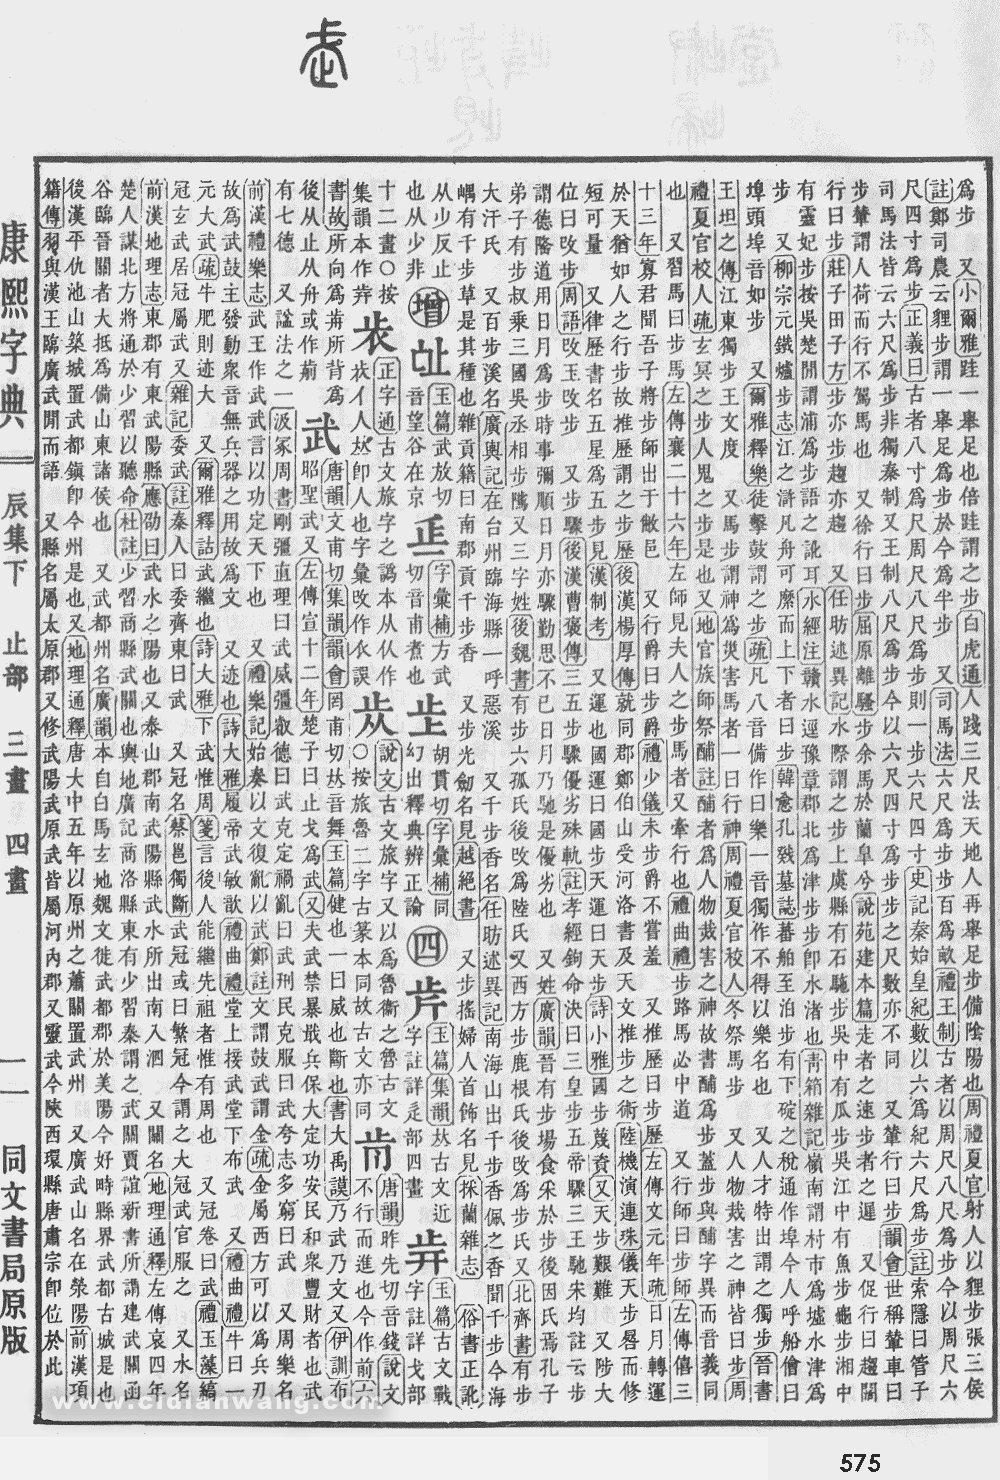 爲步　又小爾雅跬一舉足也倍跬謂之步白虎通人踐三尺法天地人再舉足步備陰陽也周禮夏官射人以狸步張三侯
註鄭司農云狸步謂一舉足爲步於今爲半步　又司馬法六尺爲步步百爲畝禮王制古者以周尺八尺爲步今以周尺六
尺四寸爲步正義曰古者八寸爲尺周尺八尺爲步則一步六尺四寸史記秦始皇紀數以六爲紀六尺爲步註索隱曰管子
司馬法皆云六尺爲步非獨秦制又王制八尺爲步今以六尺四寸爲步步之尺數亦不同　又輦行曰步韻會世稱輦車曰
步輦謂人荷而行不駕馬也　又徐行曰步屈原離騷步余馬於蘭臯兮說苑建本篇走者之速步者之遲　又促行曰趨闊
行曰步莊子田子方步亦步趨亦趨　又任昉述異記水際謂之步上虞縣有石駞步吳中有瓜步吳江中有魚步龜步湘中
有靈妃步按吳楚閒謂浦爲步語之訛耳水經注贛水逕豫章郡北爲津步步卽水渚也靑箱雜記嶺南謂村市爲墟水津爲
步　又柳宗元鐵爐步志江之滸凡舟可縻而上下者曰步韓愈孔戣墓誌蕃舶至泊步有下碇之稅通作埠今人呼船儈曰
埠頭埠音如步　又爾雅釋樂徒擊鼓謂之步疏凡八音備作曰樂一音獨作不得以樂名也　又人才特出謂之獨步晉書
王坦之傳江東獨步王文度　又馬步謂神爲災害馬者一曰行神周禮夏官校人冬祭馬步　又人物烖害之神皆曰步周
禮夏官校人疏玄冥之步人鬼之步是也又地官族師祭酺註酺者爲人物烖害之神故書酺爲步蓋步與酺字異而音義同
也　又習馬曰步馬左傳襄二十六年左師見夫人之步馬者又牽行也禮曲禮步路馬必中道　又行師曰步師左傳僖三
十三年寡君聞吾子將步師出于敝邑　又行爵曰步爵禮少儀未步爵不嘗羞　又推歷曰步歷左傳文元年疏日月轉運
於天猶如人之行步故推歷謂之步歷後漢楊厚傳就同郡鄭伯山受河洛書及天文推步之術陸機演連珠儀天步晷而修
短可量　又律歷書名五星爲五步見漢制考　又運也國運曰國步天運曰天步詩小雅國步蔑資又天步艱難　又陟大
位曰攺步周語攺王攺步　又步驟後漢曹襃傳三五步驟優劣殊軌註孝經鉤命決曰三皇步五帝驟三王馳宋均註云步
謂德隆道用日月爲步時事彌順日月亦驟勤思不已日月乃馳是優劣也　又姓廣韻晉有步場食采於步後因氏焉孔子
弟子有步叔乘三國吳丞相步隲又三字姓後魏書有步六孤氏後攺爲陸氏又西方步鹿根氏後攺爲步氏又北齊書有步
大汗氏　又百步溪名廣輿記在台州臨海縣一呼惡溪　又千步香名任昉述異記南海山出千步香佩之香聞千步今海
嵎有千步草是其種也雜貢籍曰南郡貢千步香　又步光劒名見越絕書　又步搖婦人首飾名見採蘭雜志　俗書正訛
从少反止
也从少非
增
玉篇武放切
音望谷在京
字彙補方武
切音甫煮也
胡貫切字彙補同
幻出釋典辨正論
四
玉篇集韻𠀤古文近
字註詳辵部四畫
玉篇古文戰
字註詳戈部
十二畫○按
集韻本作歬
正字通古文旅字之譌本从从作
人𠀤卽人也字彙攺作
說文古文旅字又以爲魯衞之魯古文
○按旅魯二字古篆本同故古文亦同
歬
唐韻昨先切音錢說文
不行而進也今作前六
書故所向爲歬所背爲
後从止从舟或作歬
武
唐韻文甫切集韻韻會罔甫切𠀤音舞玉篇健也一曰威也斷也書大禹謨乃武乃文又伊訓布
昭聖武又左傳宣十二年楚子曰止戈爲武又夫武禁暴戢兵保大定功安民和衆豐財者也武
有七德　又諡法之一汲冢周書剛彊直理曰武威彊叡德曰武克定禍亂曰武刑民克服曰武夸志多窮曰武　又周樂名
前漢禮樂志武王作武武言以功定天下也　又禮樂記始奏以文復亂以武鄭註文謂鼓武謂金疏金屬西方可以爲兵刃
故爲武鼓主發動衆音無兵器之用故爲文　又迹也詩大雅履帝武敏歆禮曲禮堂上接武堂下布武　又禮曲禮牛曰一
元大武疏牛肥則迹大　又爾雅釋詁武繼也詩大雅下武惟周箋言後人能繼先祖者惟有周也　又冠卷曰武禮玉藻縞
冠玄武居冠屬武又雜記委武註秦人曰委齊東曰武　又冠名蔡邕獨斷武冠或曰繁冠今謂之大冠武官服之　又水名
前漢地理志東郡有東武陽縣應劭曰武水之陽也又泰山郡南武陽縣武水所出南入泗　又關名地理通釋左傳哀四年
楚人謀北方將通於少習以聽命杜註少習商縣武關也輿地廣記商洛縣東有少習秦謂之武關賈誼新書所謂建武關函
谷臨晉關者大抵爲備山東諸侯也　又武都州名廣韻本自白馬氐地魏文徙武都郡於美陽今好畤縣界武都古城是也
後漢平仇池山築城置武都鎭卽今州是也又地理通釋唐大中五年以原州之蕭關置武州　又廣武山名在滎陽前漢項
籍傳羽與漢王臨廣武閒而語　又縣名屬太原郡又修武陽武原武皆屬河內郡又靈武今陝西環縣唐肅宗卽位於此
康熙字典　辰集下　止部　三畫　四畫　一一　同文書局原版
www.cidianwang.com
575